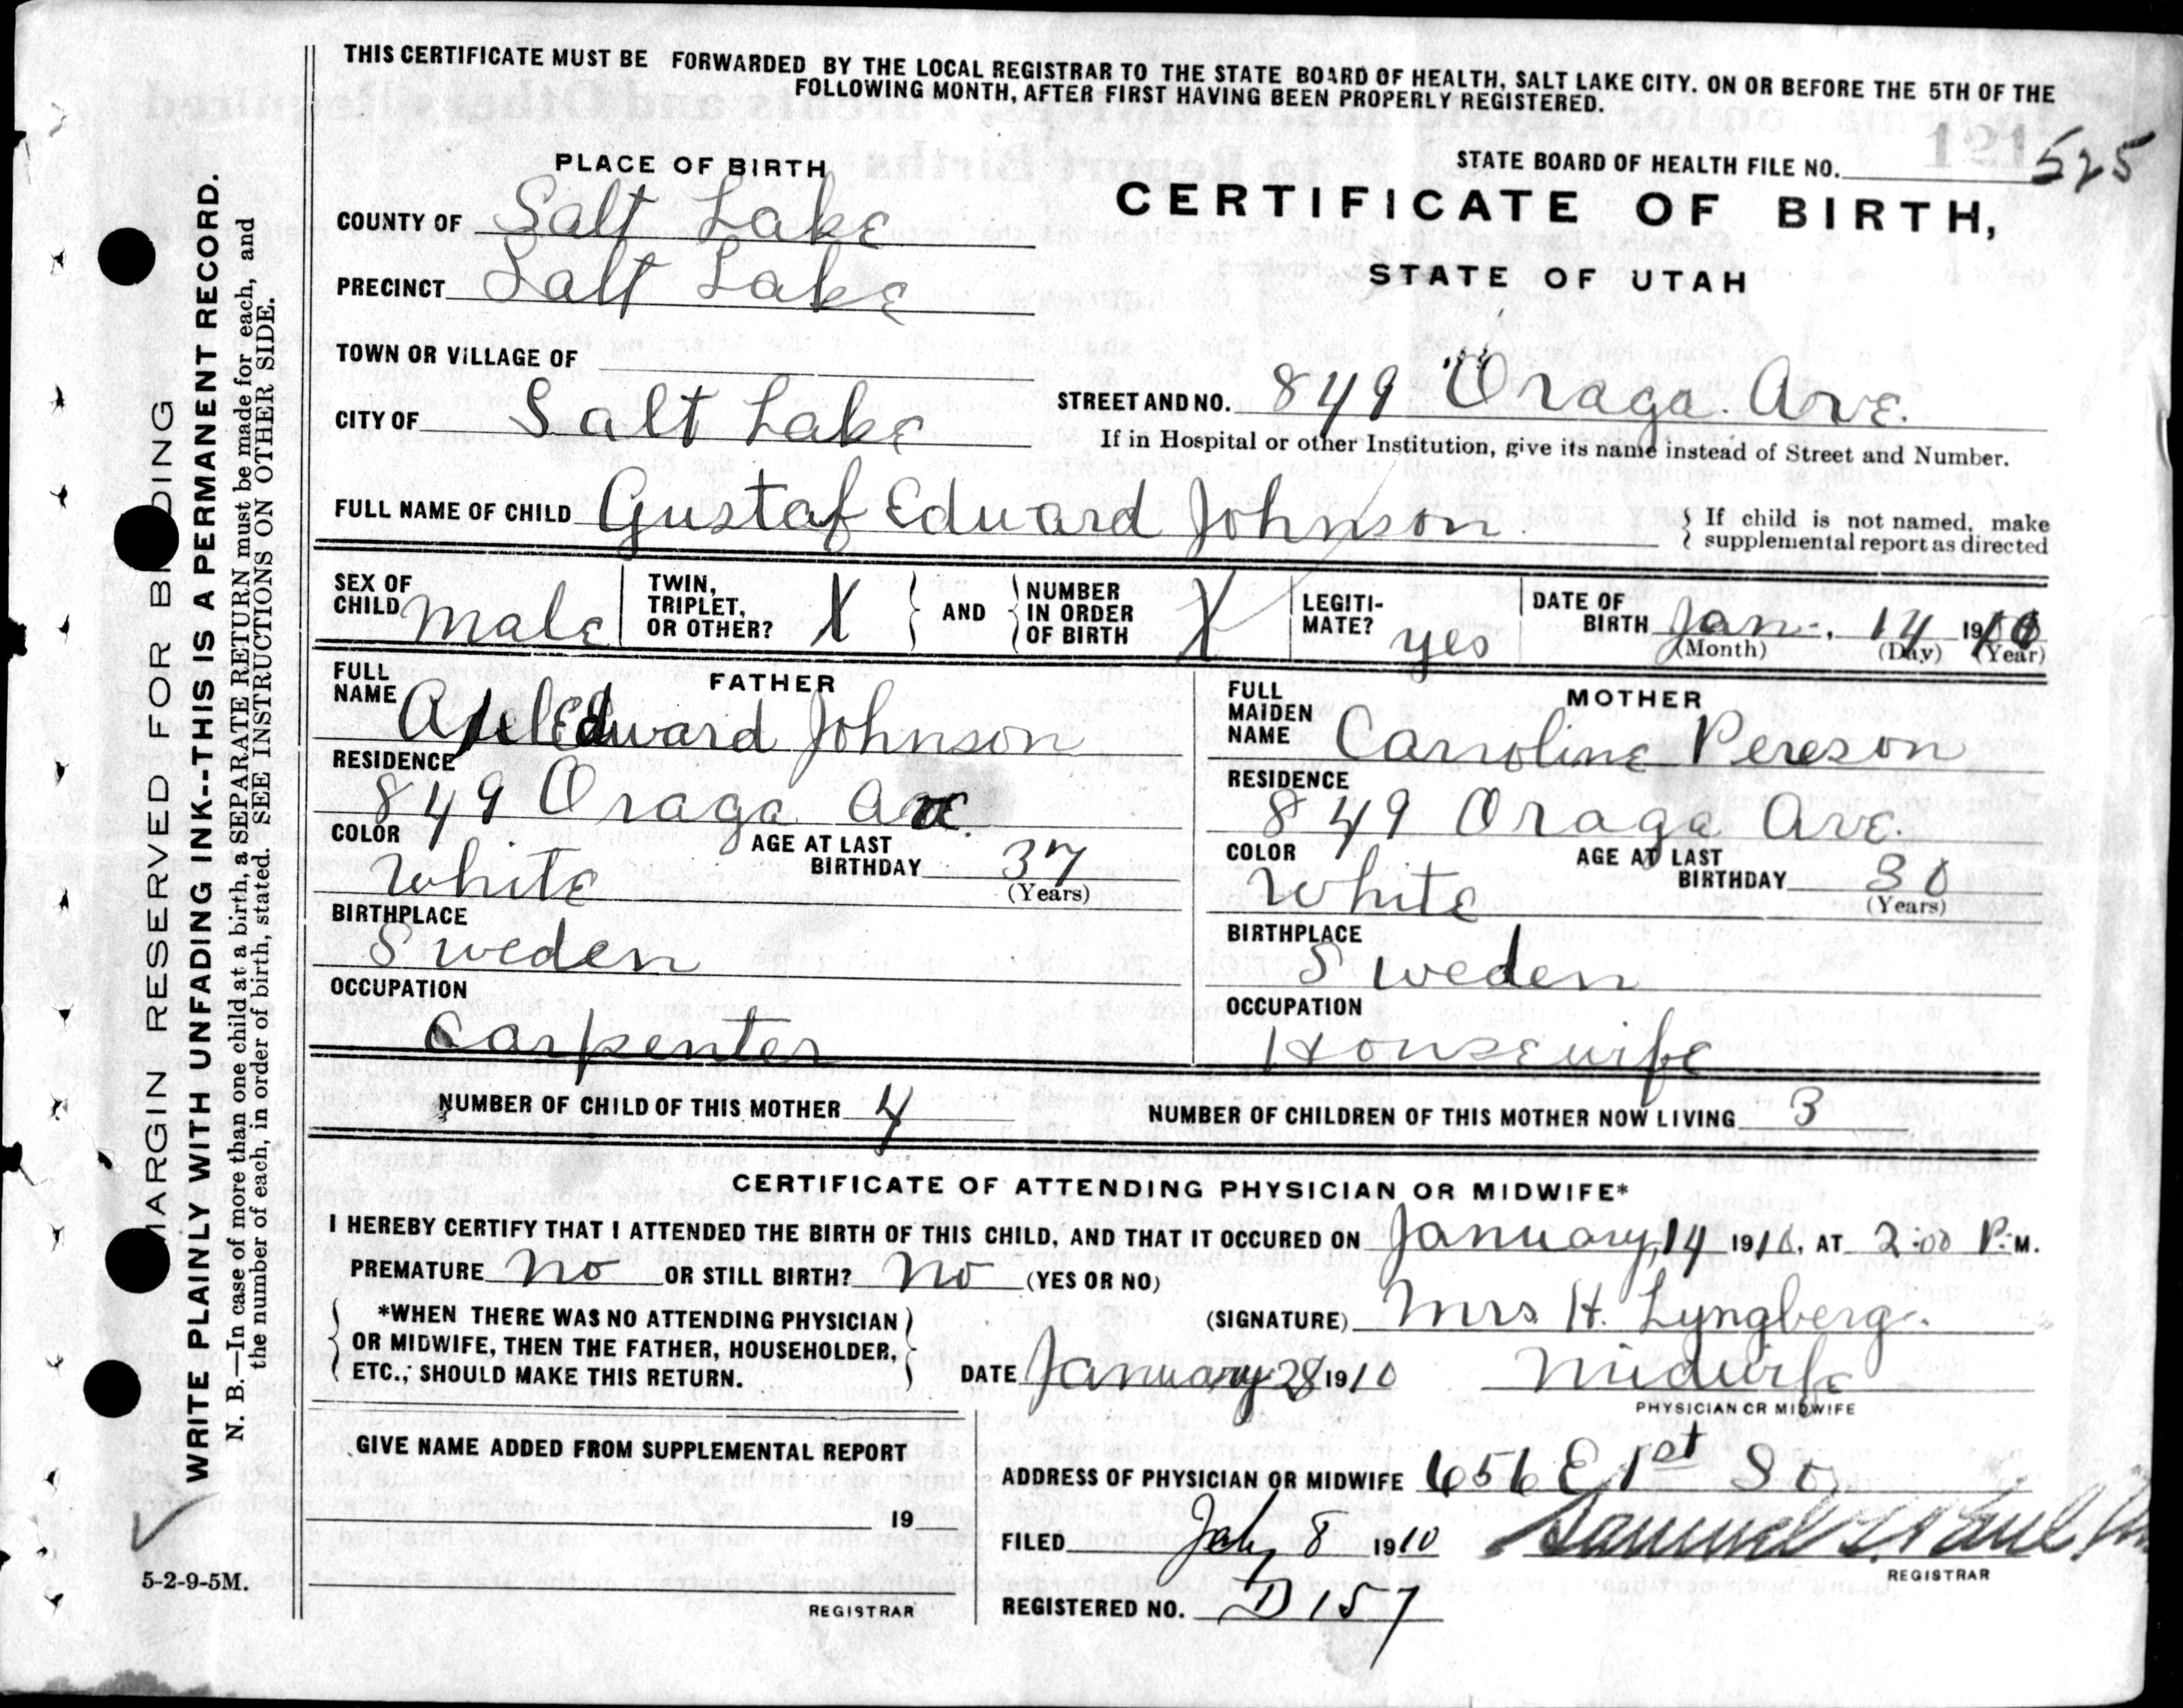 THIS CERTIFICATE MUST BE FORWARDED BY THE LOCAL REGISTRAR TO THE STATE BOARD OF HEALTH, SALT LAKE CITY. ON OR BEFORE THE 5TH OF THE
FOLLOWING MONTH, AFTER FIRST HAVING BEEN PROPERLY REGISTERED.
PLACE OF BIRTH
STATE BOARD OF HEALTH FILE NO. 121 525
COUNTY OF Salt Lake
CERTIFICATE OF BIRTH,
PRECINCT Salt Lake
STATE OF UTAH
TOWN OR VILLAGE OF
CITY OF Salt Lake
STREET AND NO. 849 Oraga. Ave.
If in Hospital or other Institution, give its name instead of Street and Number.
FULL NAME OF CHILD Gustaf Edward Johnson
If child is not named, make
supplemental report as directed
SEX OF CHILD male
TWIN, TRIPLET, OR OTHER? X
AND
NUMBER IN ORDER OF BIRTH X
LEGITI-MATE? yes
DATE OF BIRTH Jan. 14 1910
(Month) (Day) (Year)
FATHER
FULL NAME Axel Edward Johnson
RESIDENCE
849 Oraga Ave
COLOR White
AGE AT LAST BIRTHDAY 37
(Years)
BIRTHPLACE
Sweden
OCCUPATION
Carpenter
MOTHER
FULL MAIDEN NAME Carroline Pereson
RESIDENCE
849 Oraga Ave.
COLOR White
AGE AT LAST BIRTHDAY 30
(Years)
BIRTHPLACE
Sweden
OCCUPATION
Housewife
NUMBER OF CHILD OF THIS MOTHER 4
NUMBER OF CHILDREN OF THIS MOTHER NOW LIVING 3
CERTIFICATE OF ATTENDING PHYSICIAN OR MIDWIFE*
I HEREBY CERTIFY THAT I ATTENDED THE BIRTH OF THIS CHILD, AND THAT IT OCCURED ON January 14 1910, AT 2:00 P.M.
PREMATURE no OR STILL BIRTH? no (YES OR NO)
*WHEN THERE WAS NO ATTENDING PHYSICIAN
OR MIDWIFE, THEN THE FATHER, HOUSEHOLDER,
ETC., SHOULD MAKE THIS RETURN.
(SIGNATURE) Mrs. H. Lyngberg.
DATE January 28 1910
Midwife
PHYSICIAN OR MIDWIFE
GIVE NAME ADDED FROM SUPPLEMENTAL REPORT
19
REGISTRAR
ADDRESS OF PHYSICIAN OR MIDWIFE 656 E 1st So
FILED 8 1910 Samuel G. Paul
REGISTRAR
REGISTERED NO. D 157
MARGIN RESERVED FOR BINDING
WRITE PLAINLY WITH UNFADING INK--THIS IS A PERMANENT RECORD.
N. B.—In case of more than one child at a birth, a SEPARATE RETURN must be made for each, and
the number of each, in order of birth, stated. SEE INSTRUCTIONS ON OTHER SIDE.
5-2-9-5M.